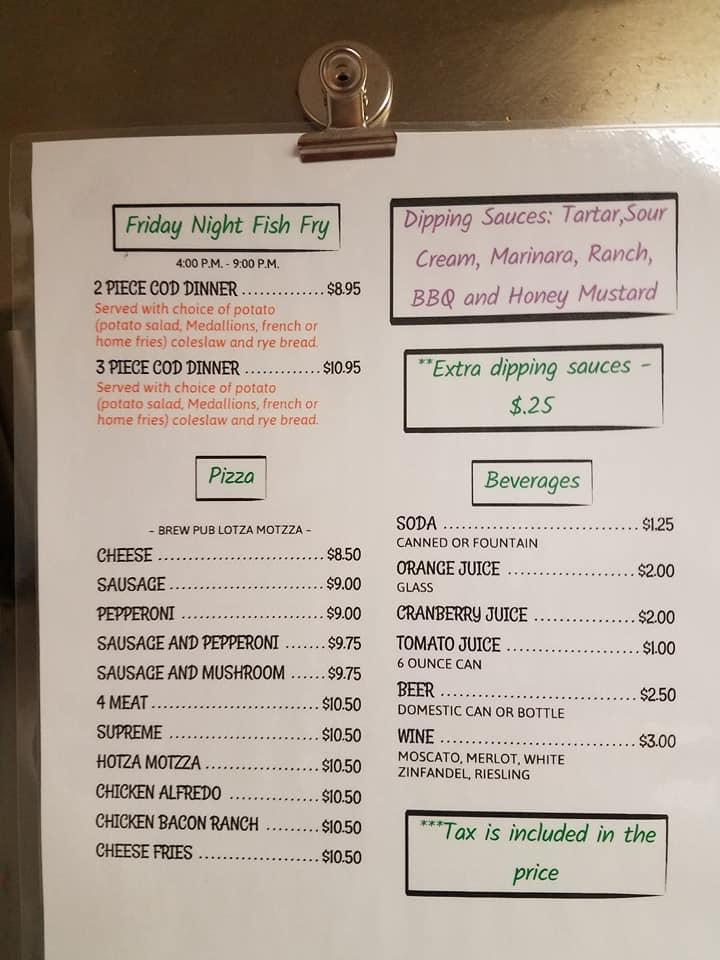 Friday Night Fish Fry
4:00 P.M. - 9:00 P.M.
2 PIECE COD DINNER ............... $8.95
Served with choice of potato
(potato salad, Medallions, french or
home fries) coleslaw and rye bread.
3 PIECE COD DINNER ............ $10.95
Served with choice of potato
(potato salad, Medallions, french or
home fries) coleslaw and rye bread.
Pizza
- BREW PUB LOTZA MOTZZA -
CHEESE ............................. $8.50
SAUSAGE ........................... $9.00
PEPPERONI ......................... $9.00
SAUSAGE AND PEPPERONI ....... $9.75
SAUSAGE AND MUSHROOM ...... $9.75
4 MEAT ............................. $10.50
SUPREME .......................... $10.50
HOTZA MOTZZA .................... $10.50
CHICKEN ALFREDO ............... $10.50
CHICKEN BACON RANCH ......... $10.50
CHEESE FRIES ..................... $10.50
Dipping Sauces: Tartar,Sour
Cream, Marinara, Ranch,
BBQ and Honey Mustard
**Extra dipping sauces -
$.25
Beverages
SODA ................................... $1.25
CANNED OR FOUNTAIN
ORANGE JUICE ...................... $2.00
GLASS
CRANBERRY JUICE ................. $2.00
TOMATO JUICE ...................... $1.00
6 OUNCE CAN
BEER ................................... $2.50
DOMESTIC CAN OR BOTTLE
WINE ................................... $3.00
MOSCATO, MERLOT, WHITE
ZINFANDEL, RIESLING
***Tax is included in the
price